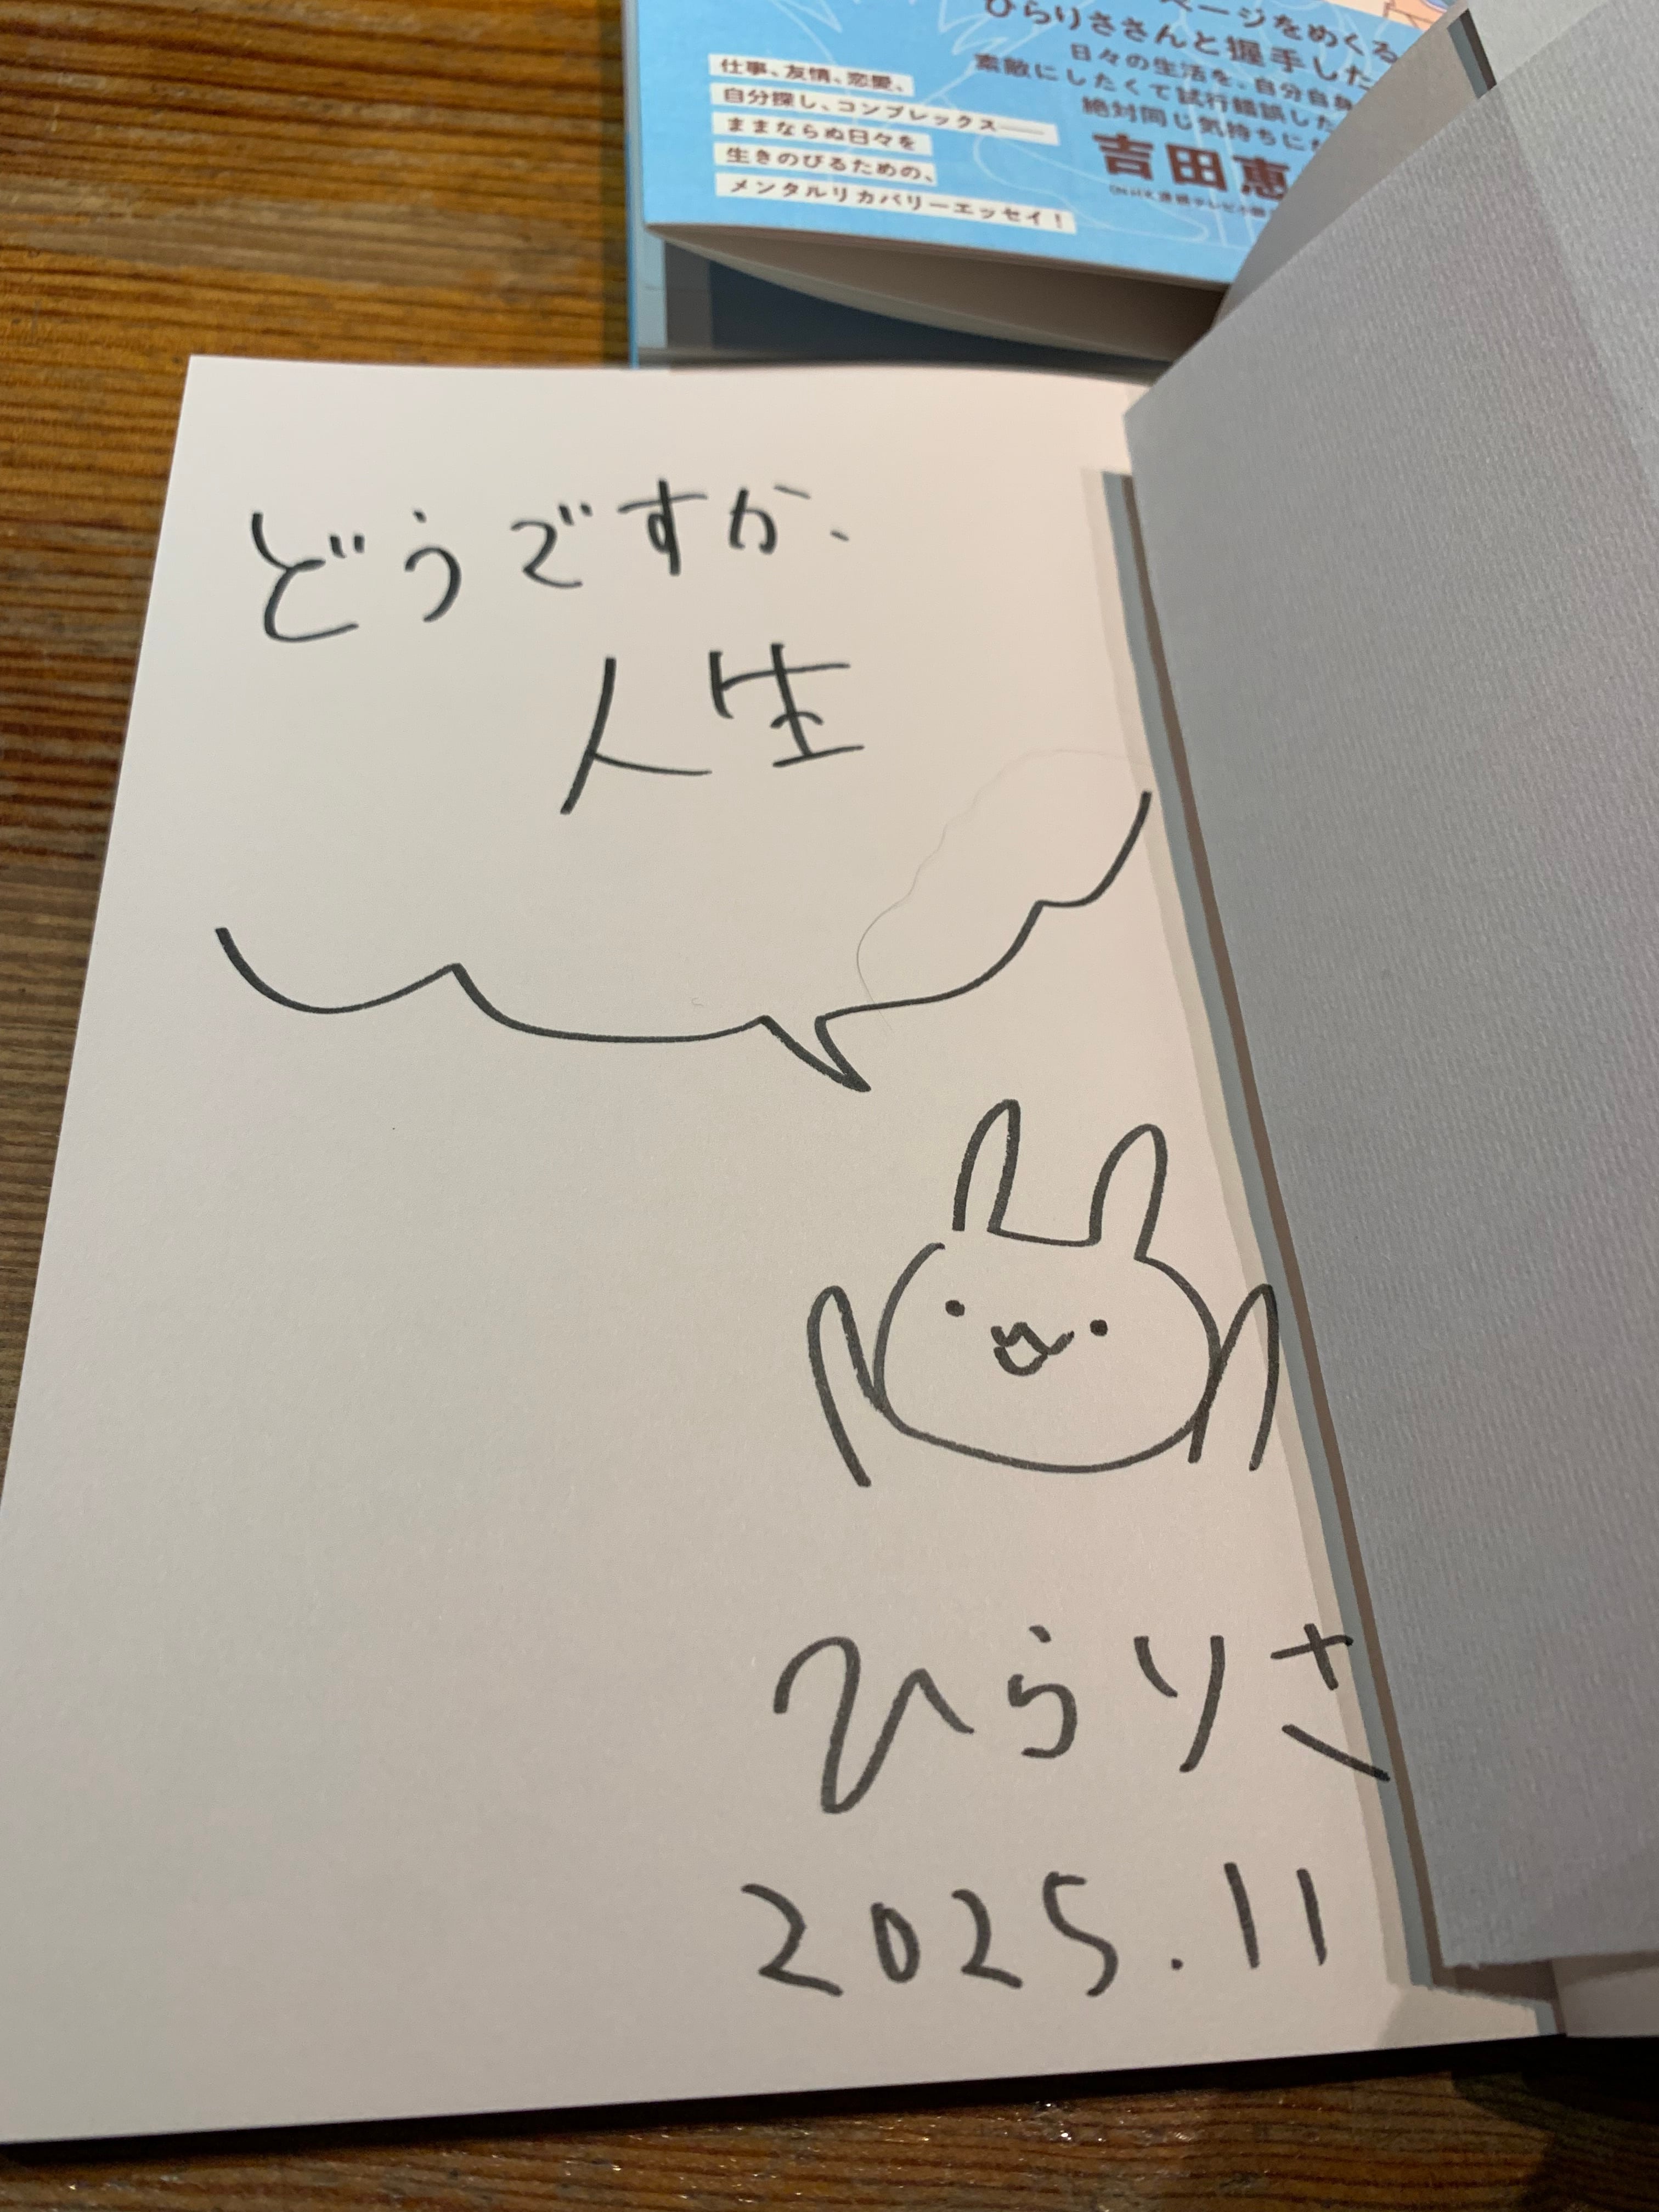 ページをめくる
ひらりささんと握手した
日々の生活を、自分自身
素敵にしたくて試行錯誤した
絶対同じ気持ちに
吉田恵
仕事、友情、恋愛、
自分探し、コンプレックス――
ままならぬ日々を
生きのびるための、
メンタルリカバリーエッセイ！
どうですか、
人生
ひらりさ
2025.11